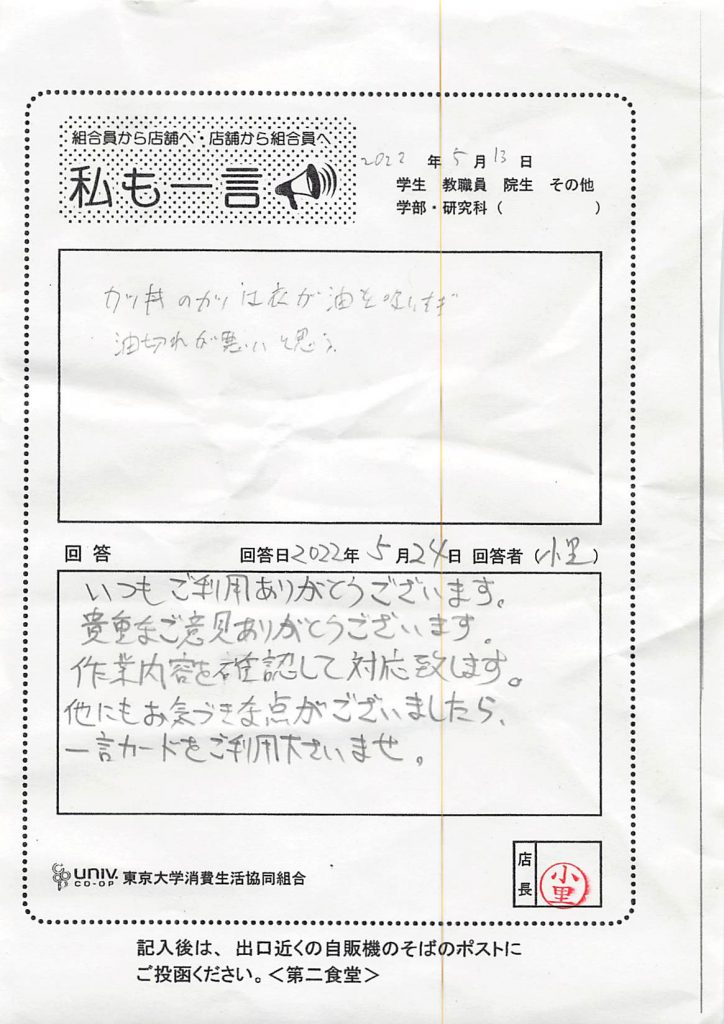 組合員から店舗へ・店舗から組合員へ
私も一言
2022 年 5 月 13 日
学生 教職員 院生 その他
学部・研究科( )
カツ丼のカツは衣が油を吸いすぎ
油切れが悪いと思う。
回答 回答日2022年 5月24日 回答者(小里)
いつもご利用ありがとうございます。
貴重なご意見ありがとうございます。
作業内容を確認して対応致します。
他にもお気づきな点がございましたら、
一言カードをご利用下さいませ。
UNIV. CO-OP 東京大学消費生活協同組合
店長 小里
記入後は、出口近くの自販機のそばのポストに
ご投函ください。<第二食堂>